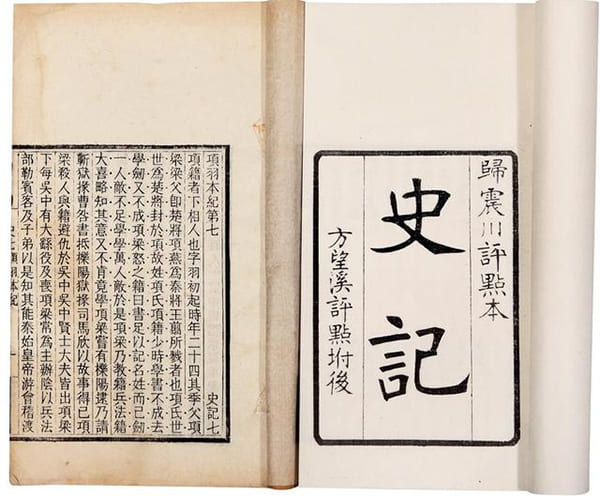 歸震川評點本
史記
方望溪評點坿後
項羽本紀第七 史記七
項籍者下相人也字羽初起時年二十四其季父項
梁梁父即楚將項燕爲秦將王翦所戮者也項氏世
世爲楚將封於項故姓項氏項籍少時學書不成去
學劒又不成項梁怒之籍曰書足以記名姓而已劒
一人敵不足學學萬人敵於是項梁乃敎籍兵法籍
大喜略知其意又不肯竟學項梁嘗有櫟陽逮乃請
蘄獄掾曹咎書抵櫟陽獄掾司馬欣以故事得已項
梁殺人與籍避仇於吳中吳中賢士大夫皆出項梁
下每吳中有大繇役及喪項梁常爲主辦陰以兵法
部勒賓客及子弟以是知其能秦始皇帝游會稽渡